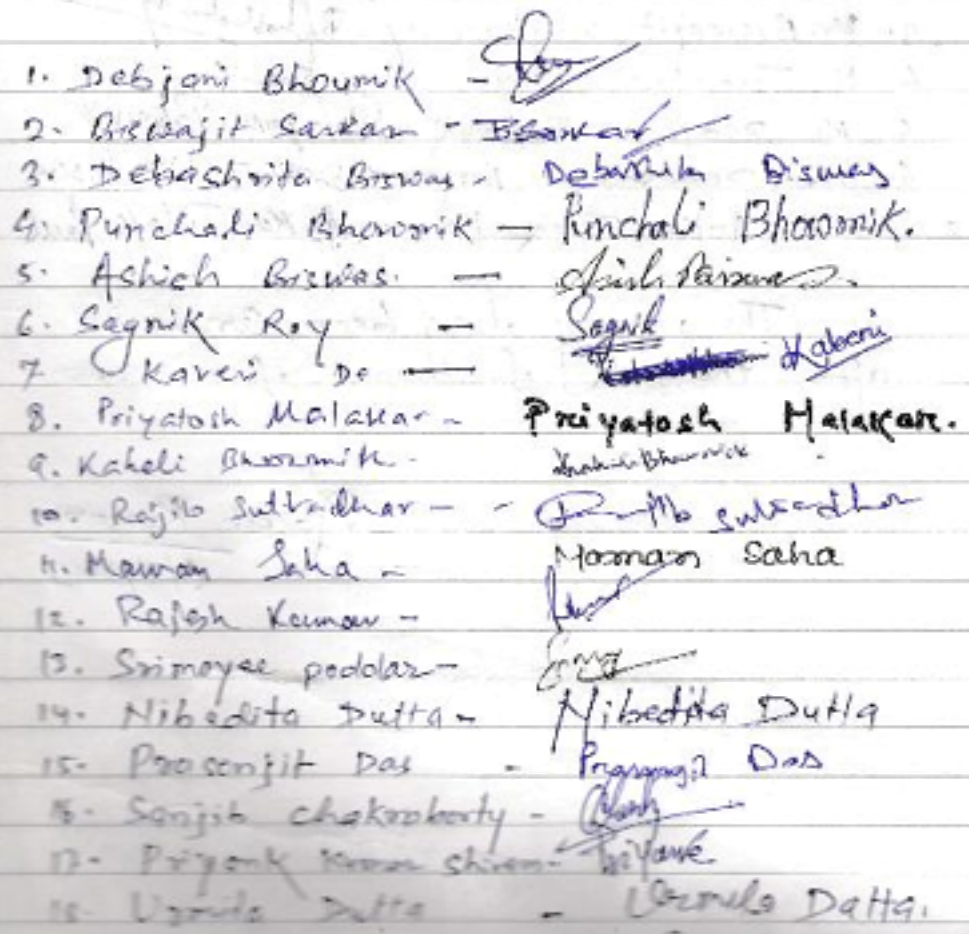 1. Debjani Bhoumik -
2. Biswajit Sarkar - BSarkar
3. Debashrita Biswas - Debashrita Biswas
4. Punchali Bhowmik — Punchali Bhowmik.
5. Ashish Biswas. —
6. Sagnik Roy — Sagnik
7 Kaveri De — Kaberi
8. Priyatosh Malakar - Priyatosh Malakar.
9. Kaheli Bhowmik. Bhowmik
10. Rajib Sutradhar - - Sutradhar
11. Mawmam Saha - Moomam Saha
12. Rajesh Kumar -
13. Srimoyee poddar -
14. Nibedita Dutta - Nibedita Dutta
15. Prosenjit Das - Das
16. Sanjib chakroborty -
17. Priyank Kumar -
18. Urmila Dutta - Urmila Datta.